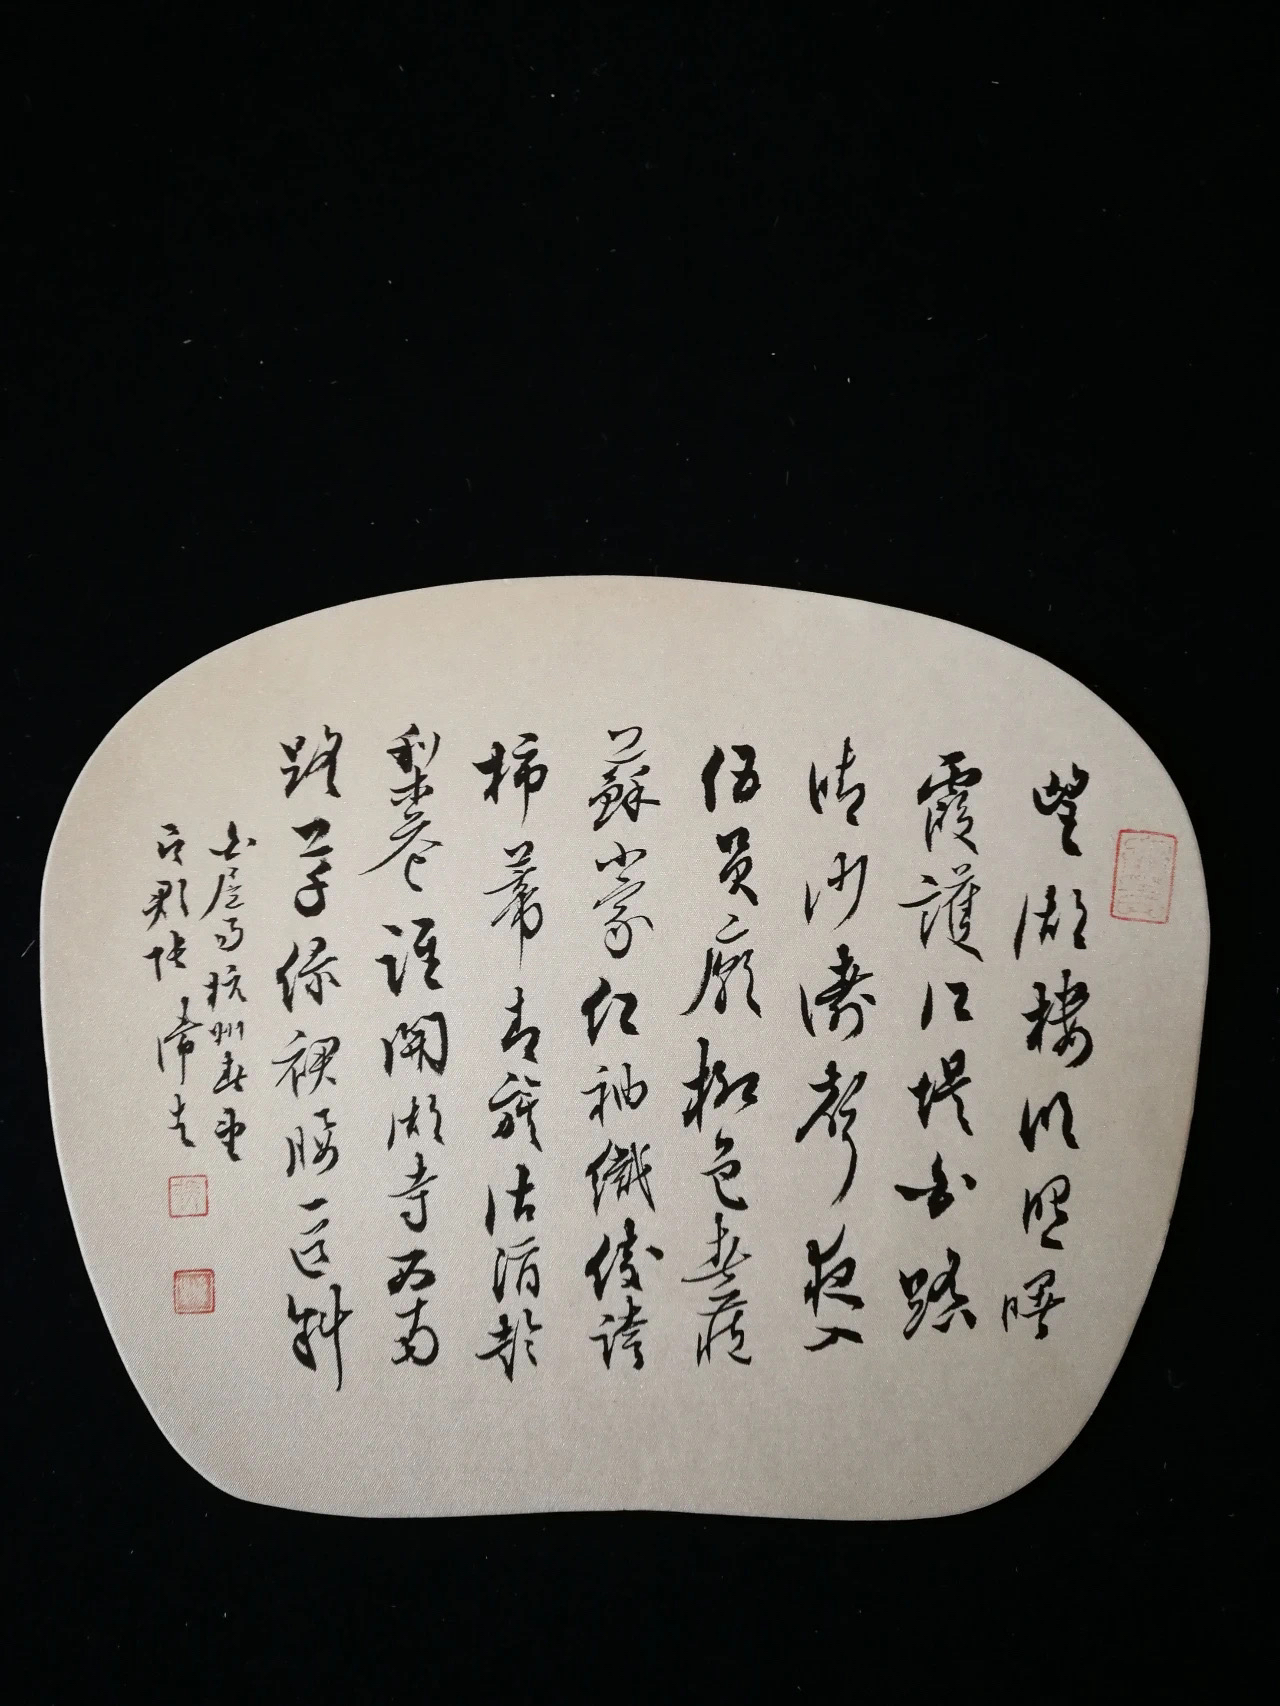 望湖樓明照曙
霞護江堤白踏
晴沙濤聲夜入
伍員廟柳色春藏
蘇小家紅袖織綾誇
柿蒂青旗沽酒趁
梨花誰開湖寺西南
路草綠裙腰一道斜
白居易杭州春望